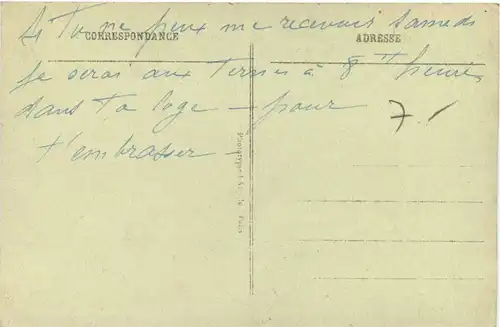 Si Tu ne peux me recevoir Samedi
CORRESPONDANCE
ADRESSE
je serai aux Ternes à 8 heures
dans Ta loge — pour
t'embrasser —
7/